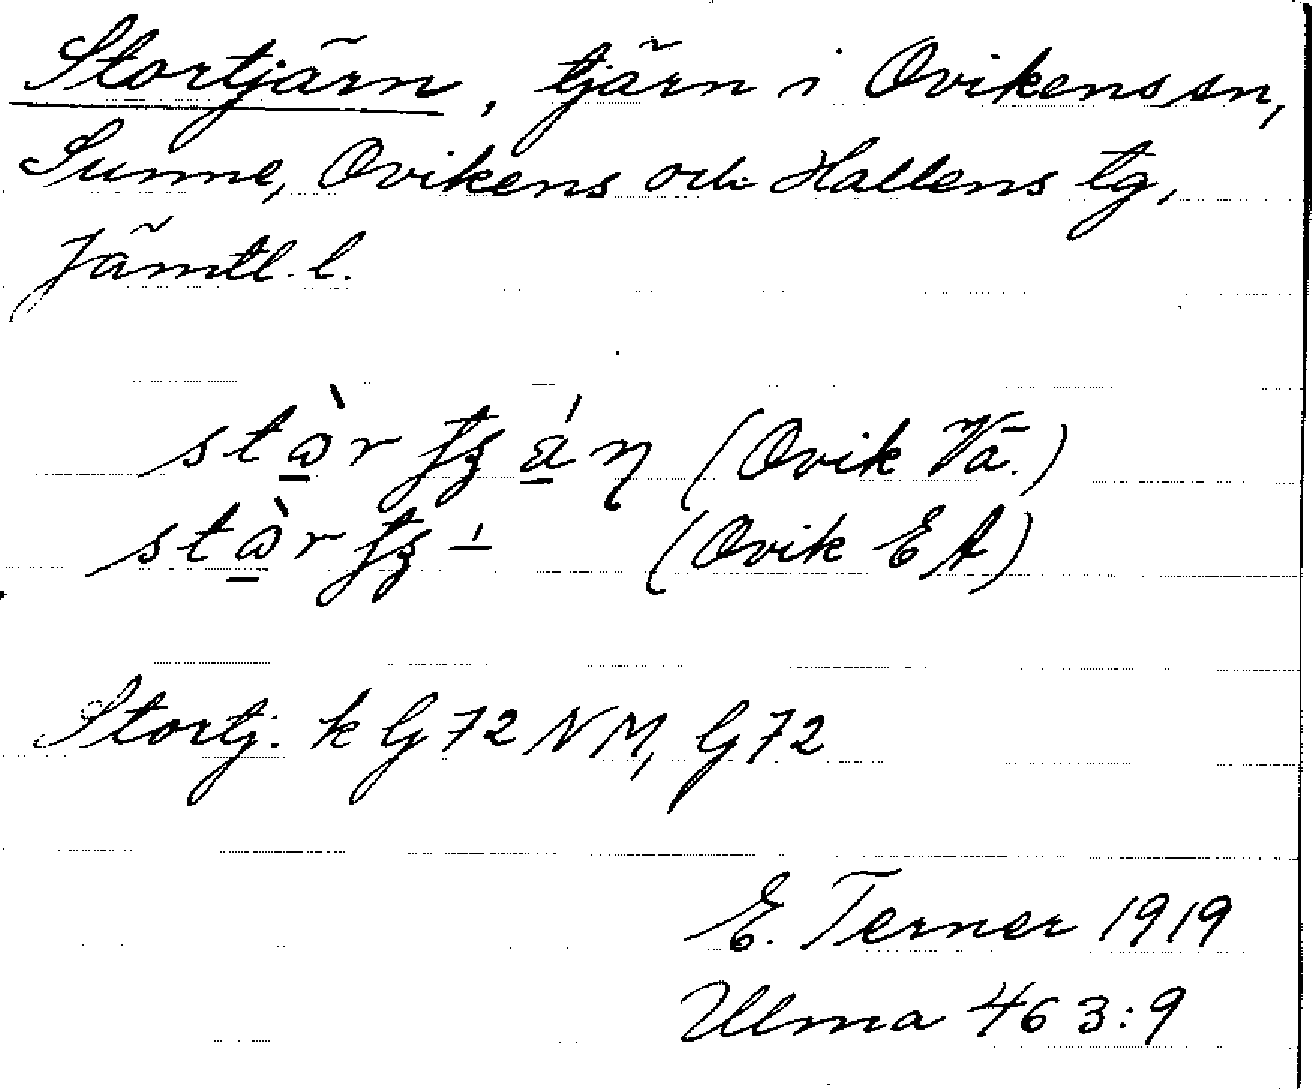 Stortjärn, tjärn i Ovikens sn,
Sunne, Ovikens och Hallens tg,
Jämtl. l.
(Ovik Vä.)
(Ovik E A)
Stortj. k G 72 NM, G 72
E. Terner 1919
Ulma 463:9